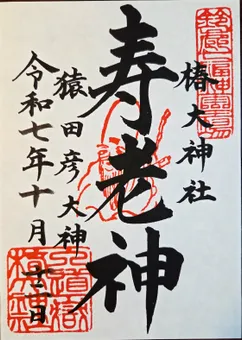 椿大神社
寿老神
猿田彦大神
令和七年十月十二日